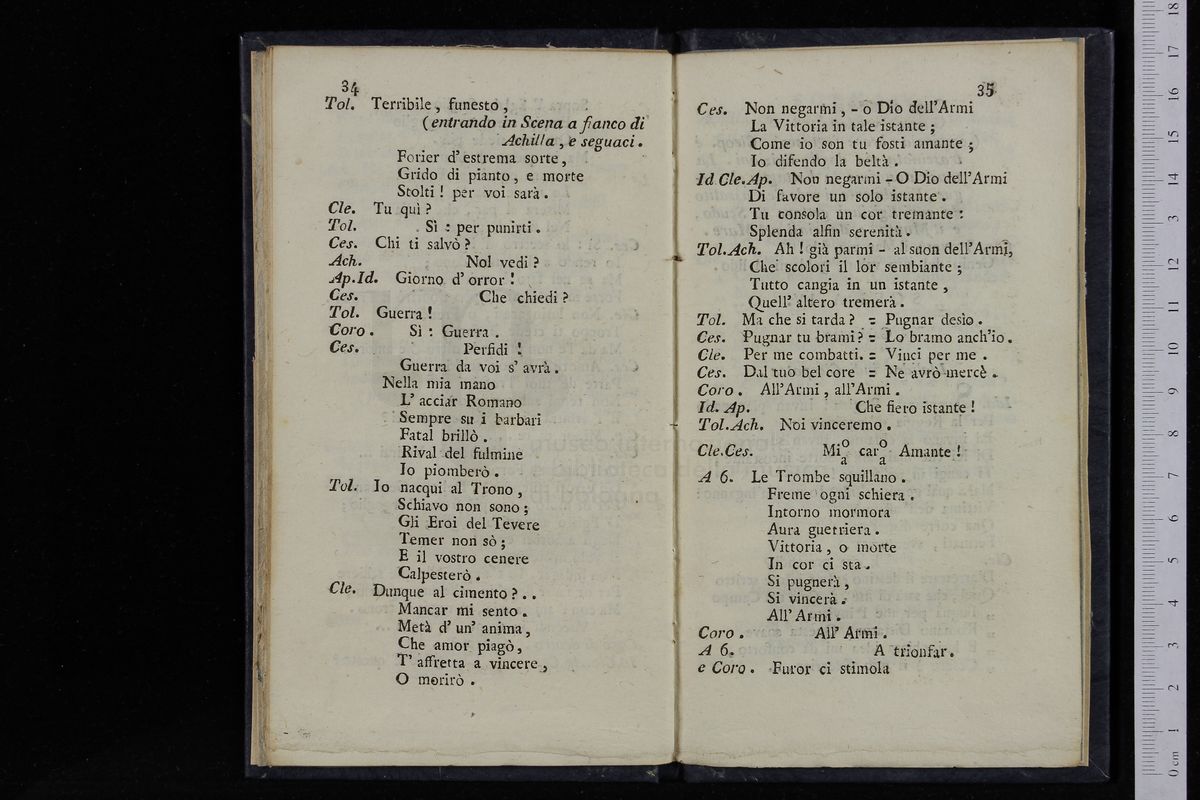 34
Tol. Terribile, funesto,
(entrando in Scena a fianco di
Achilla, e seguaci.
Forier d'estrema sorte,
Grido di pianto, e morte
Stolti! per voi sarà.
Cle. Tu quì?
Tol. Sì: per punirti.
Ces. Chi ti salvò?
Ach. Nol vedi?
Ap.Id. Giorno d'orror!
Ces. Che chiedi?
Tol. Guerra!
Coro. Sì: Guerra.
Ces. Perfidi!
Guerra da voi s'avrà.
Nella mia mano
L'acciar Romano
Sempre su i barbari
Fatal brillò.
Rival del fulmine
Io piomberò.
Tol. Io nacqui al Trono,
Schiavo non sono;
Gli Eroi del Tevere
Temer non sò;
E il vostro cenere
Calpesterò.
Cle. Dunque al cimento?..
Mancar mi sento.
Metà d'un'anima,
Che amor piagò,
T'affretta a vincere,
O morirò.
35
Ces. Non negarmi, - o Dio dell'Armi
La Vittoria in tale istante;
Come io son tu fosti amante;
Io difendo la beltà.
Id Cle.Ap. Non negarmi - O Dio dell'Armi
Di favore un solo istante.
Tu consola un cor tremante:
Splenda alfin serenità.
Tol.Ach. Ah! già parmi - al suon dell'Armi,
Che scolori il lor sembiante;
Tutto cangia in un istante,
Quell'altero tremerà.
Tol. Ma che si tarda? = Pugnar desìo.
Ces. Pugnar tu brami? = Lo bramo anch'io.
Cle. Per me combatti. = Vinci per me.
Ces. Dal tuo bel core = Ne avrò mercè.
Coro. All'Armi, all'Armi.
Id. Ap. Che fiero istante!
Tol.Ach. Noi vinceremo.
Cle.Ces. Mi o/a car o/a Amante!
A 6. Le Trombe squillano.
Freme ogni schiera.
Intorno mormora
Aura guerriera.
Vittoria, o morte
In cor ci sta.
Si pugnerà,
Si vincerà.
All'Armi.
Coro. All'Armi.
A 6. A trionfar.
e Coro. Furor ci stimola